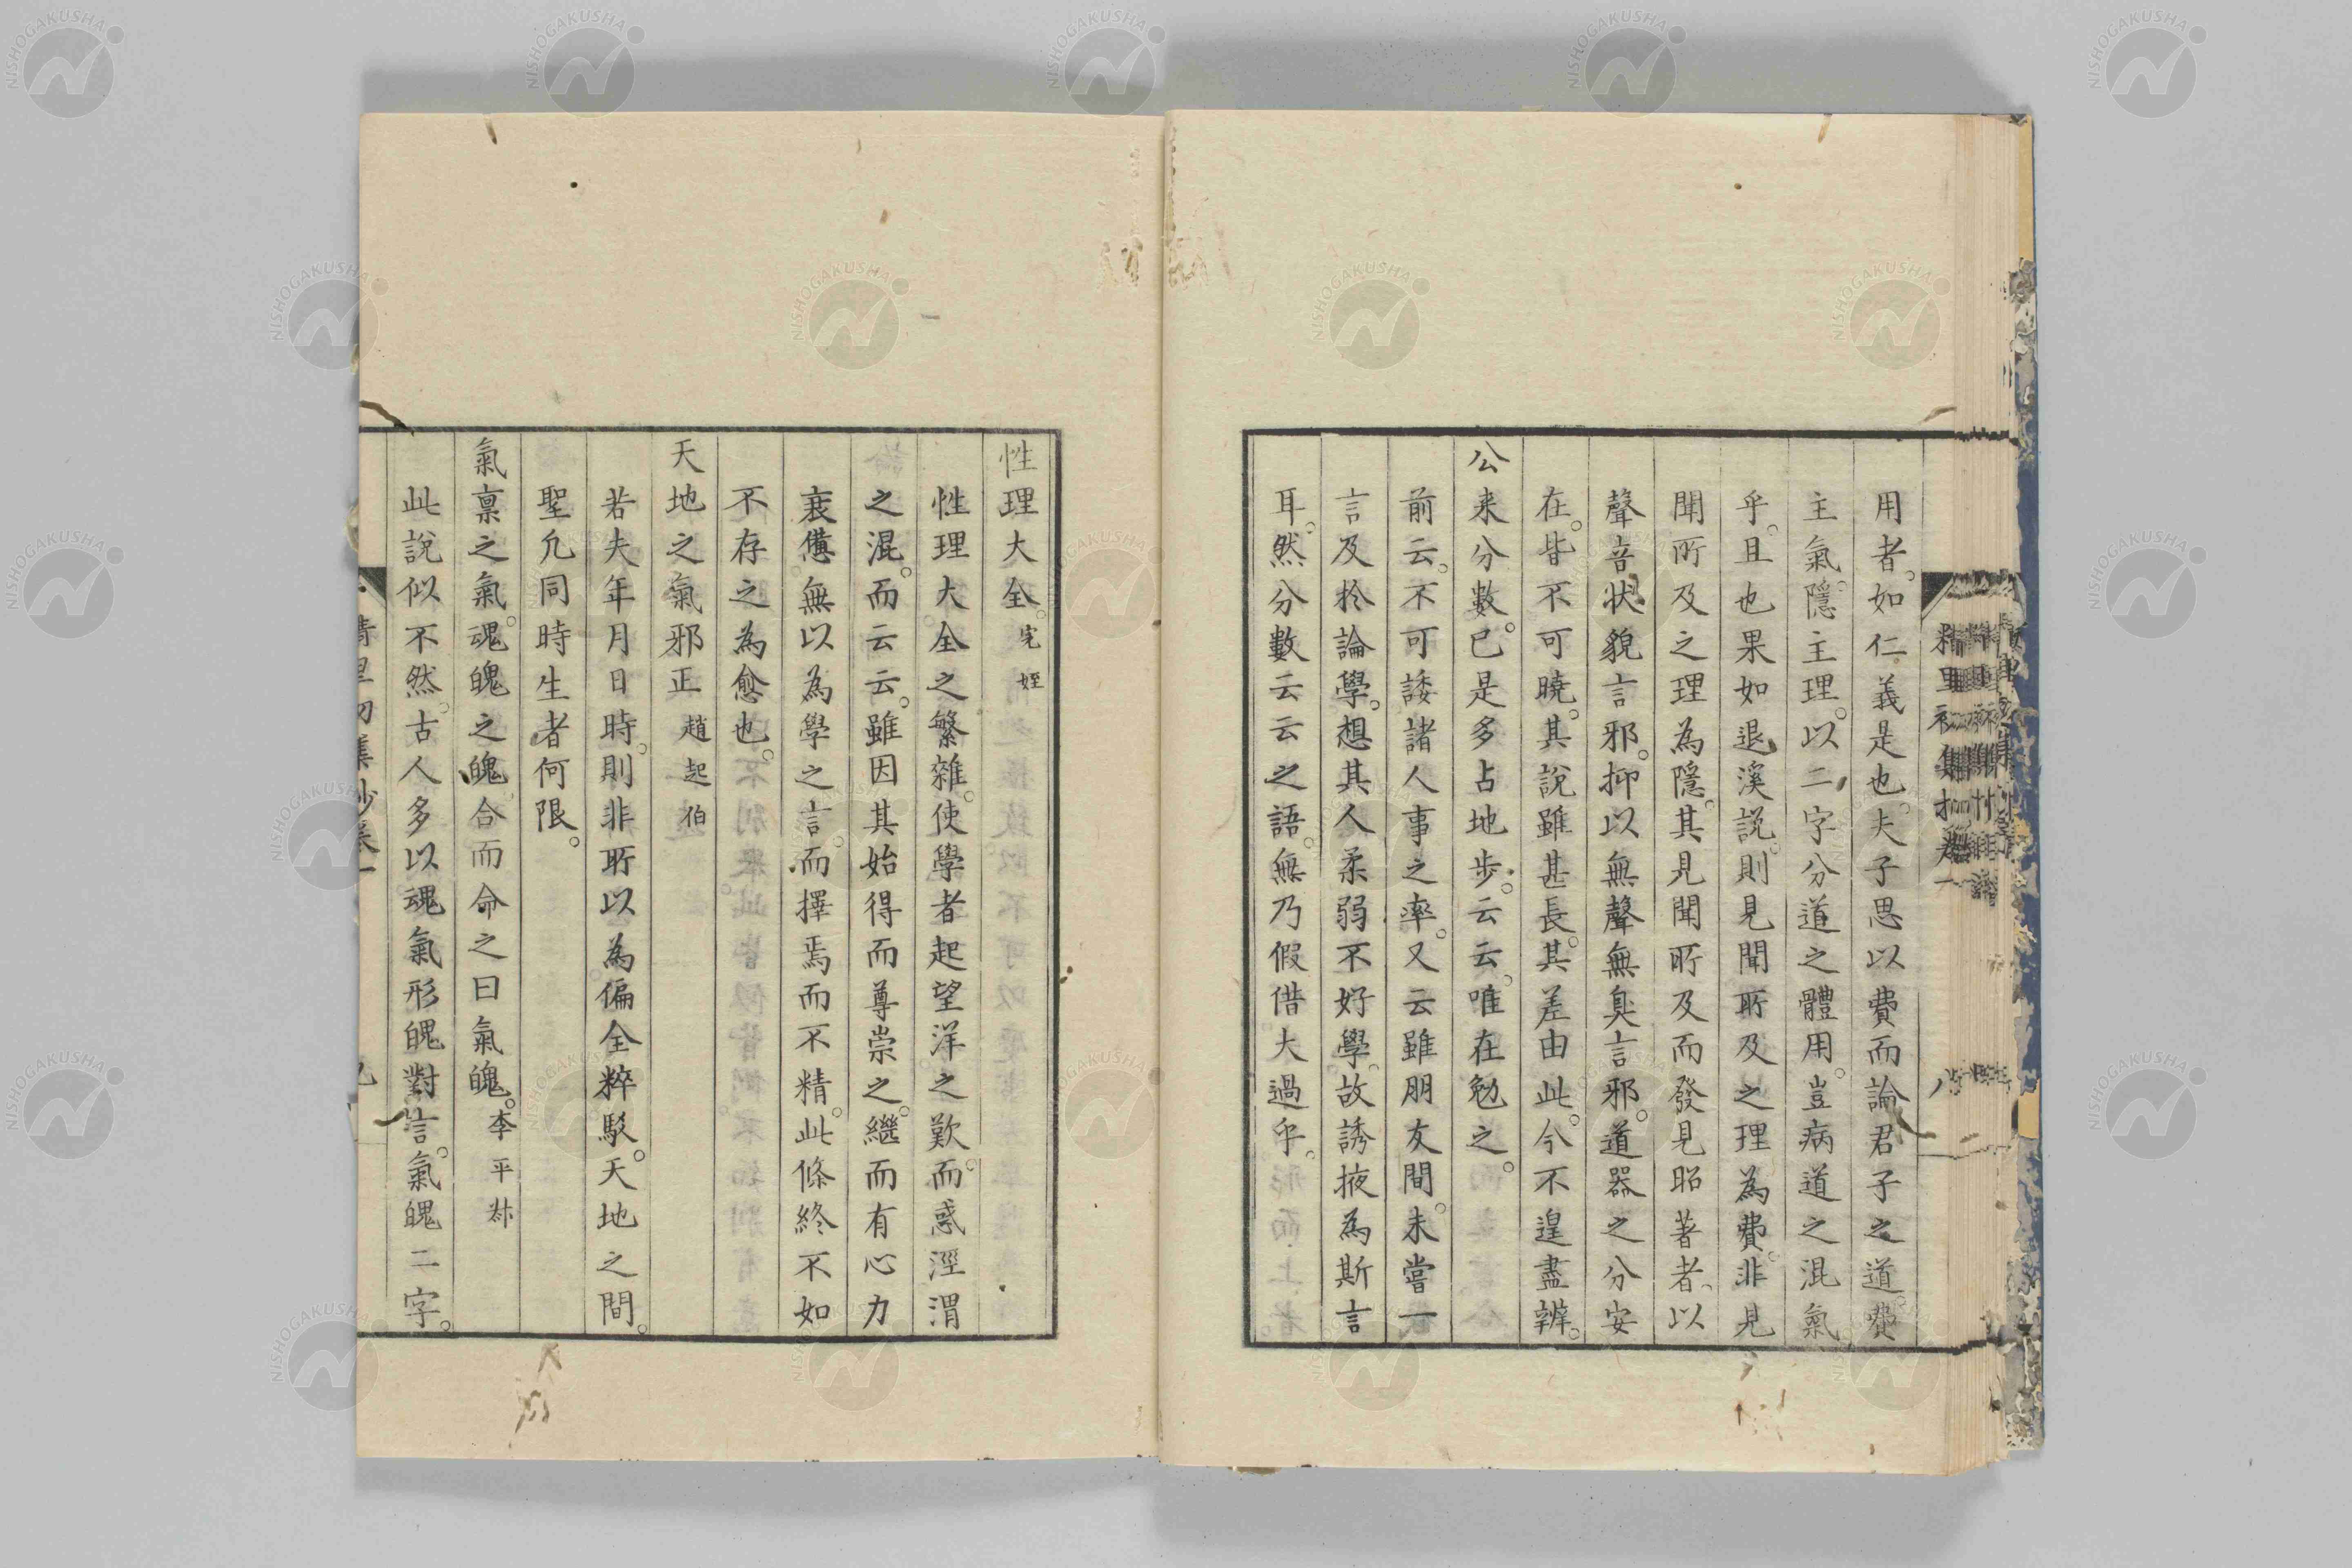 用者。如仁義是也。夫子思以費而論君子之道費
主氣。隱主理。以二字分道之體用。豈病道之混氣
乎。且也果如退溪說。則見聞所及之理為費。非見
聞所及之理為隱。其見聞所及而發見昭著者。以
聲音狀貌言邪。抑以無聲無臭言邪。道器之分安
在。皆不可曉。其說雖甚長。其差由此。今不遑盡辨。
公来分數。已是多占地步。云云。唯在勉之。
前云。不可諉諸人事之率。又云雖朋友間。未嘗一
言及於論學。想其人柔弱不好學。故誘掖為斯言
耳。然分數云云之語。無乃假借大過乎。
性理大全。完姪
性理大全之繁雜。使學者起望洋之歎。而惑涇渭
之混。而云云。雖因其始得而尊崇之。繼而有心力
衰憊。無以為學之言。而擇焉而不精。此條終不如
不存之為愈也。
天地之氣邪正 趙起伯
若夫年月日時。則非所以為偏全粹駁。天地之間。
聖凢同時生者何限。
氣禀之氣。魂魄之魄。合而命之曰氣魄。李平叔
此說似不然。古人多以魂氣形魄對言。氣魄二字。
精里初集抄卷一